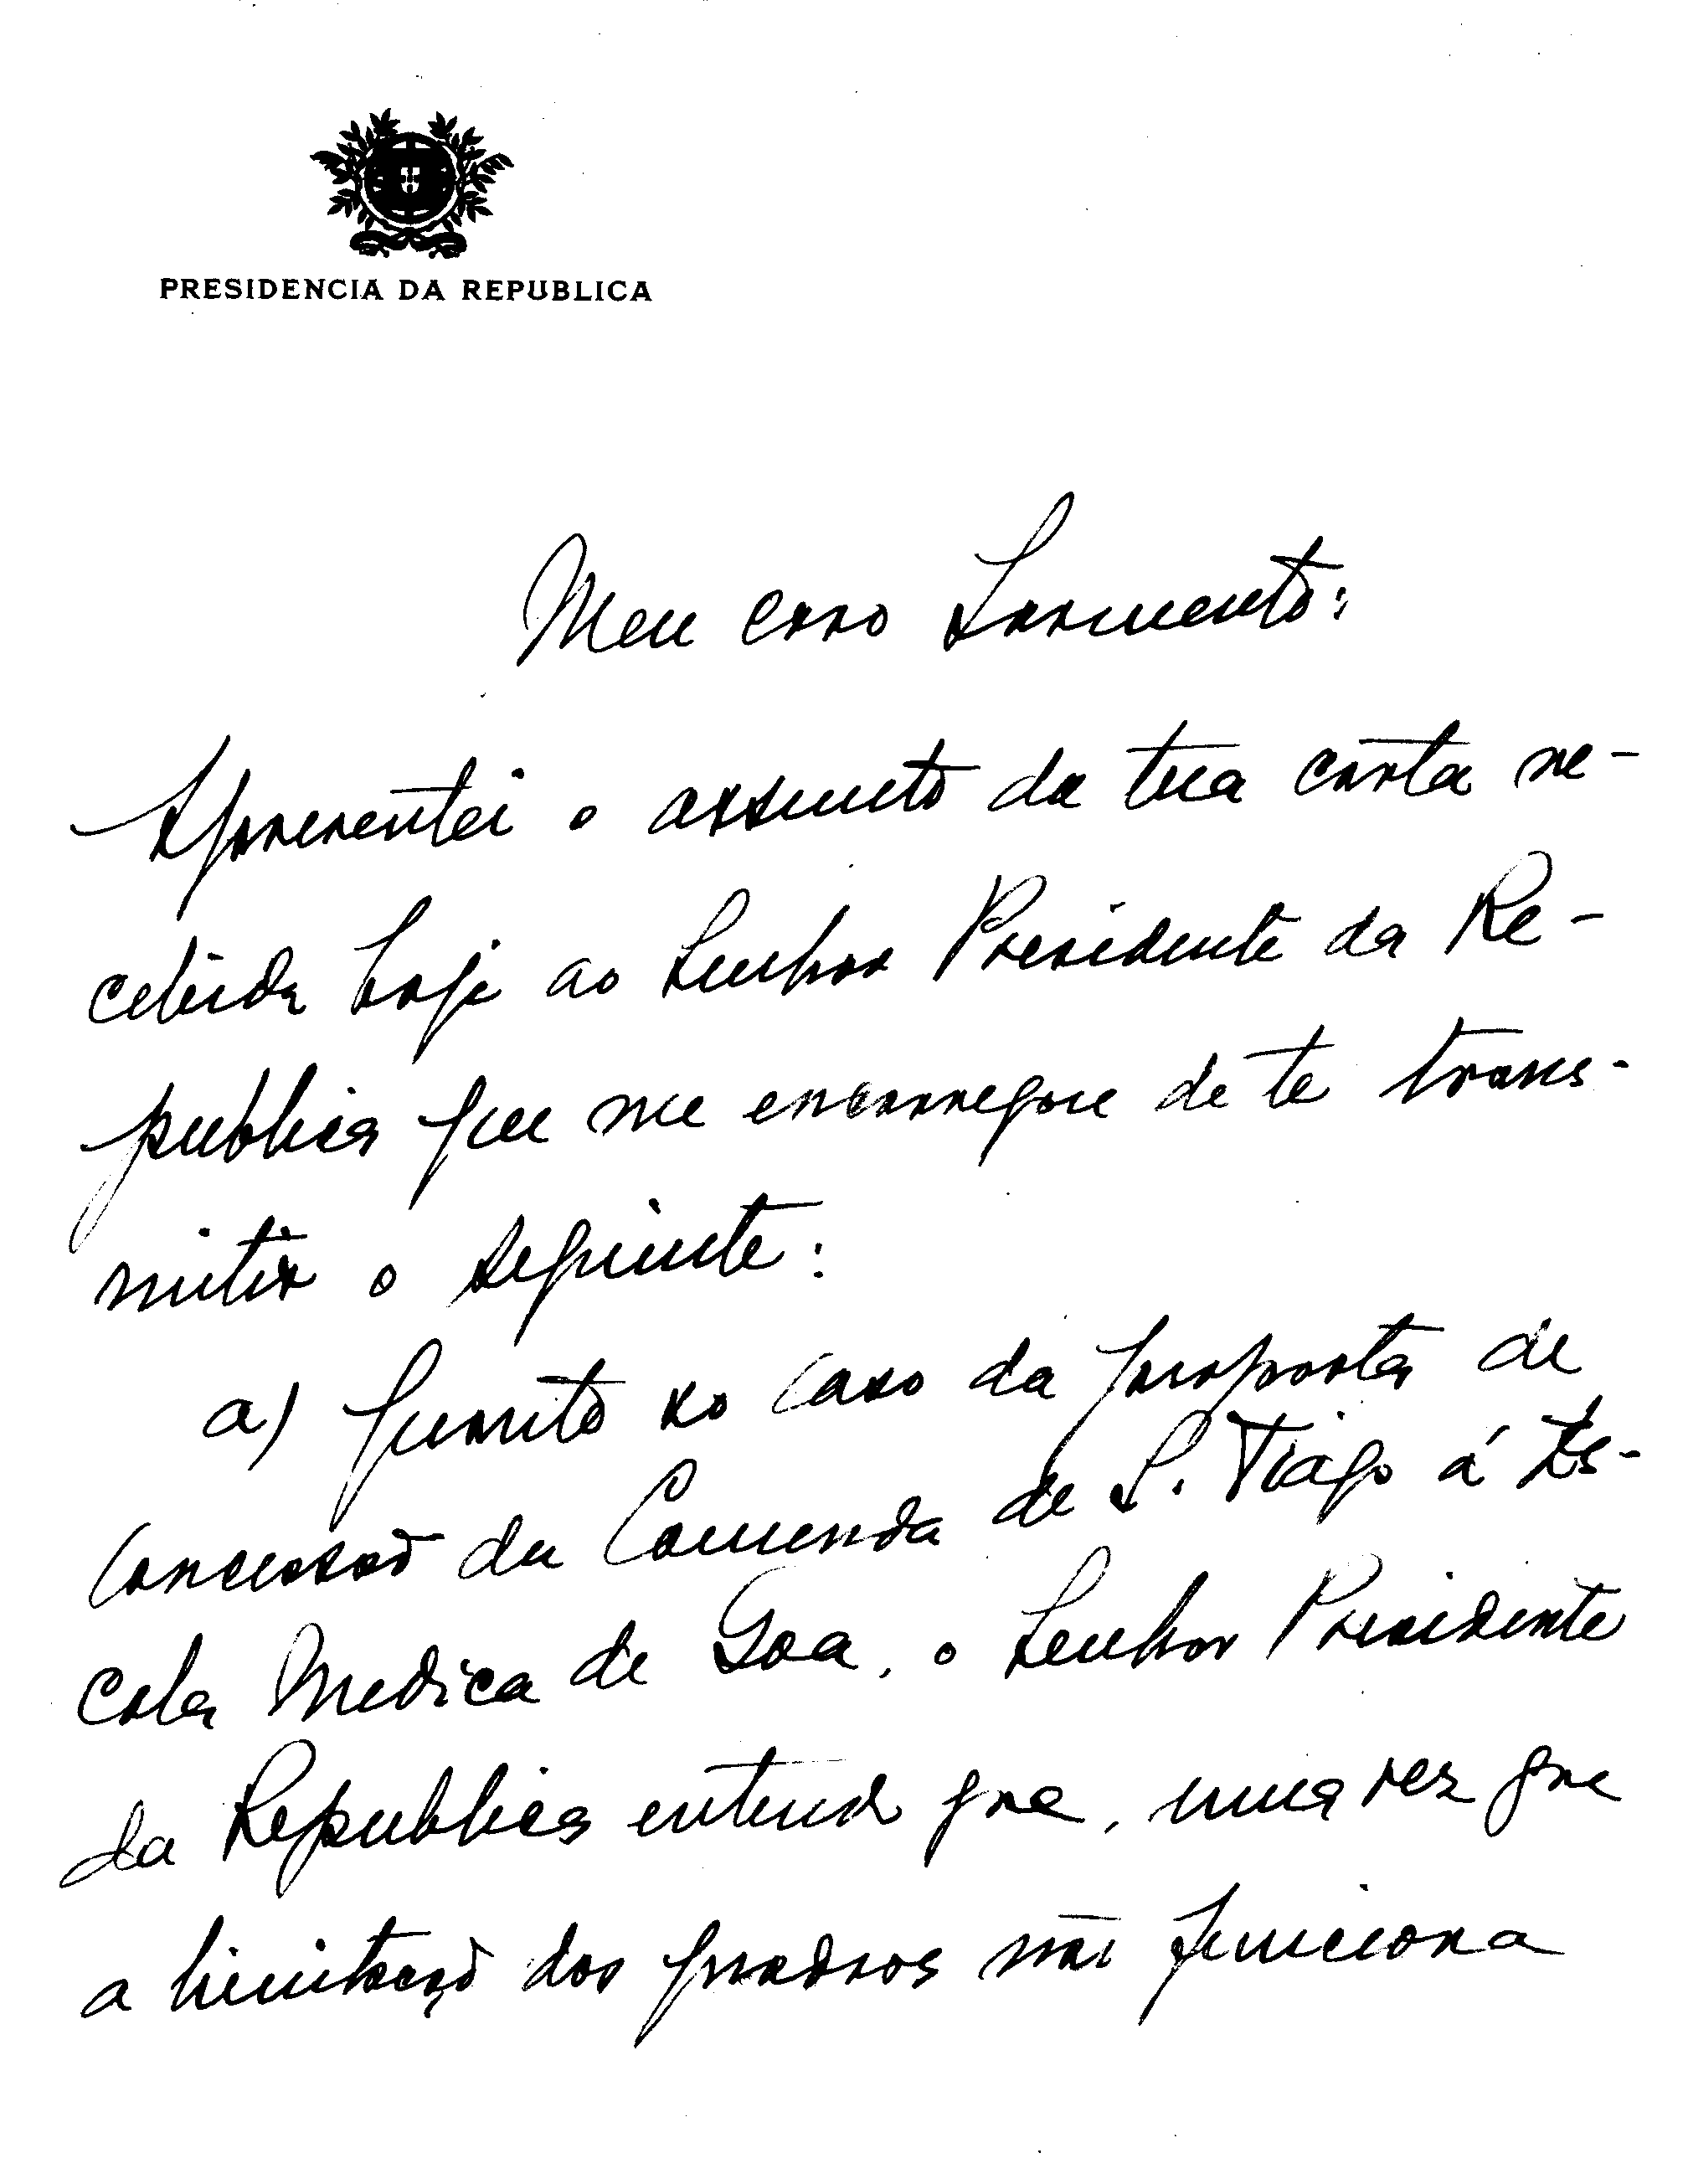 PRESIDENCIA DA REPUBLICA
Meu caro Sarmento:
Apresentei o assunto da tua carta re-
cebida hoje ao Senhor Presidente da Re-
publica que me encarregou de te trans-
mitir o seguinte:
a) quanto ao caso da proposta de
concessão da Comenda de S. Tiago á Es-
cola Medica de Goa, o Senhor Presidente
da Republica entende que, uma vez que
a limitação dos quadros não funciona